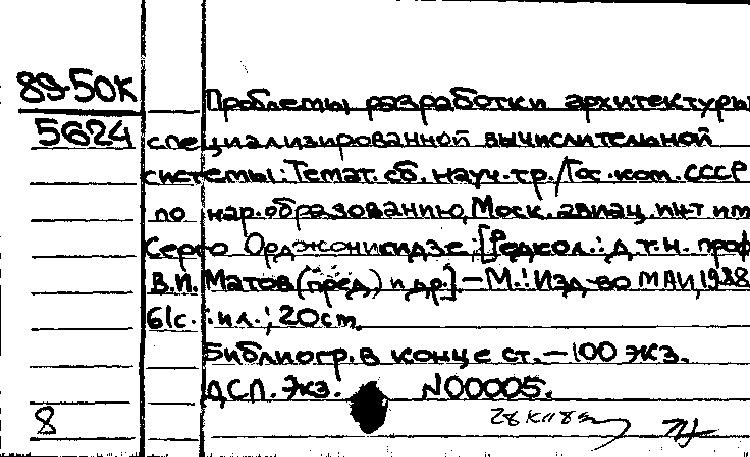 89-50К
5624
Проблемы разработки архитектуры
специализированной вычислительной
системы: Темат. сб. науч. тр. / Гос. ком. СССР
по нар. образованию, Моск. авиац. ин-т им
Серго Орджоникидзе; [Редкол.: д.т.н. проф
В.И. Матов (пред) и др.] – М.: Изд-во МАИ, 1988
61с.: ил.; 20 ст.
Библиогр. в конце ст. – 100 экз.
ДСП. Экз. N00005.
8